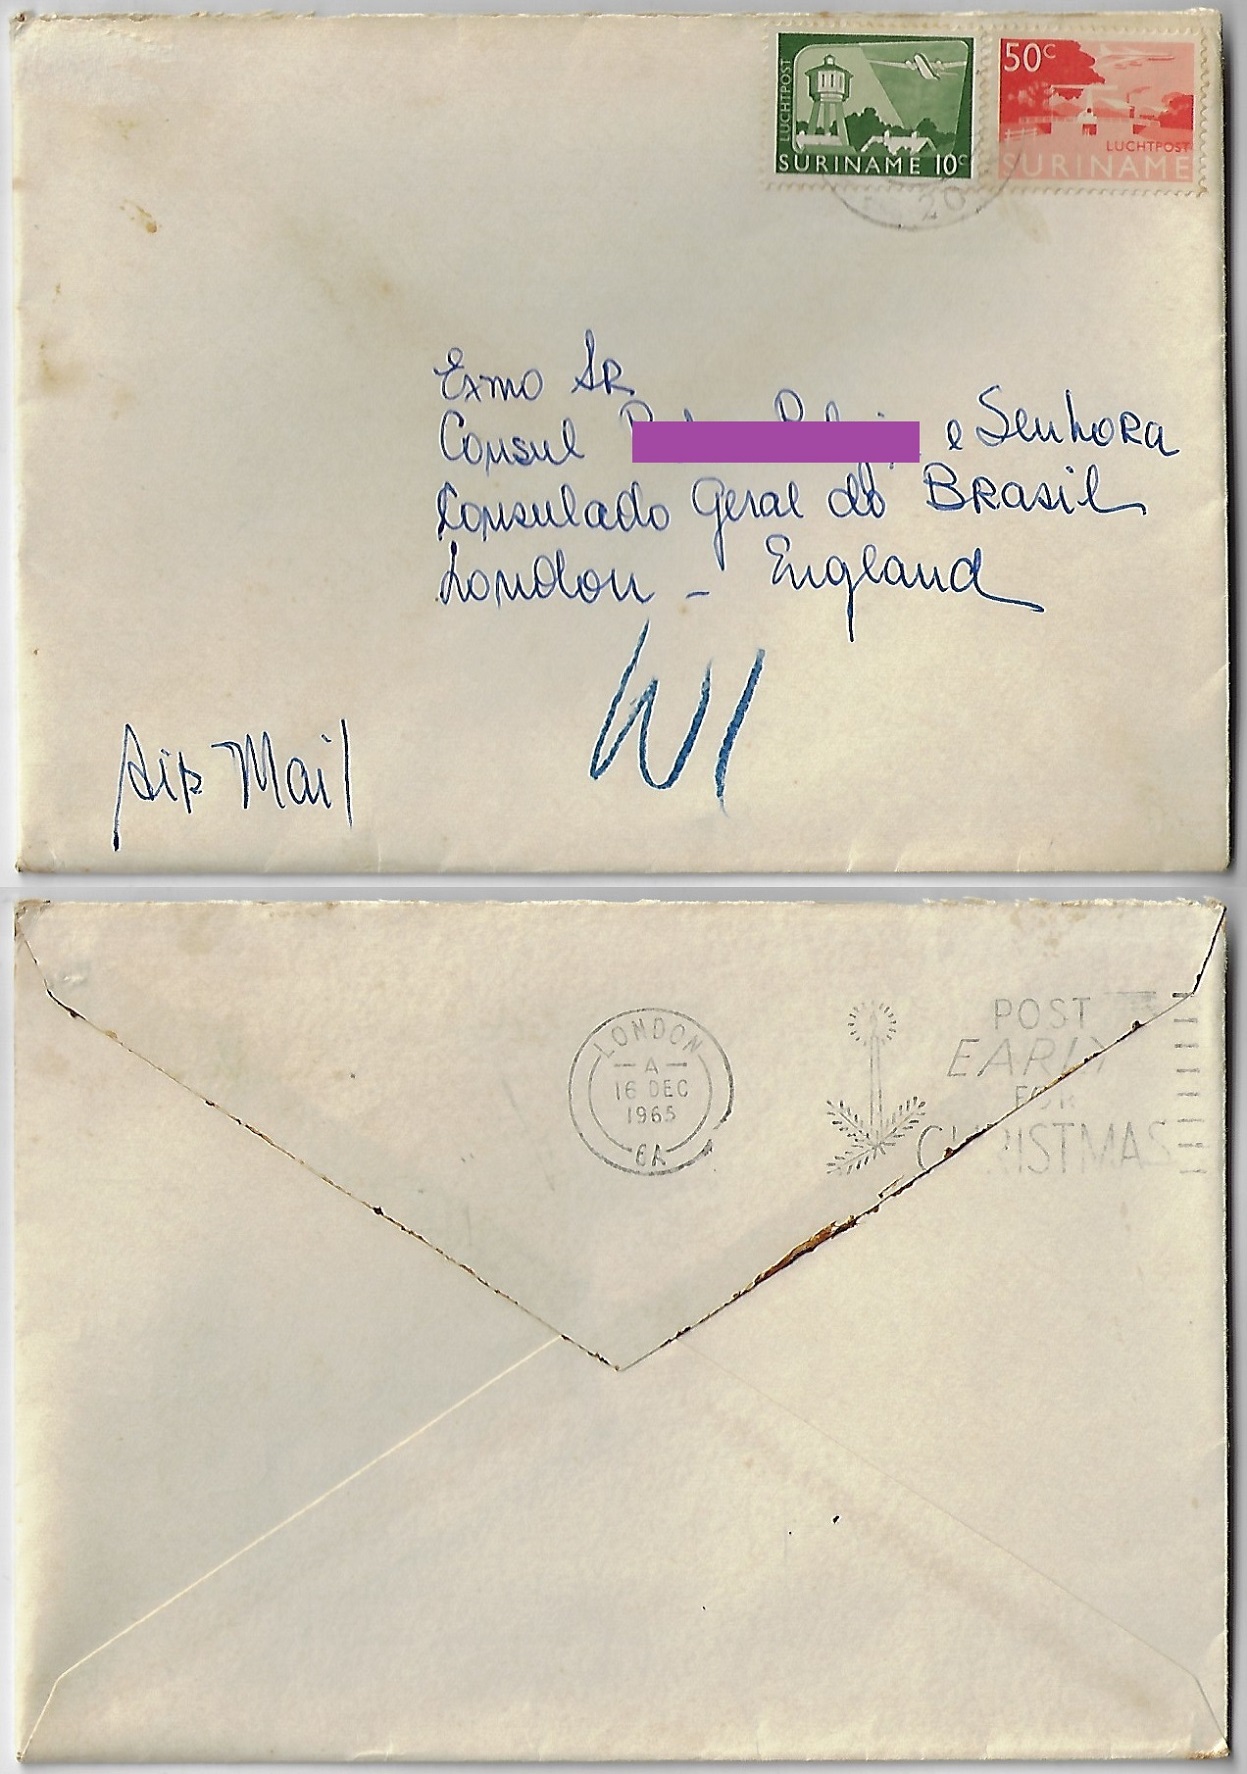 LUCHTPOST
SURINAME 10c
50c
LUCHTPOST
SURINAME
20
Exmo SR
Consul e Senhora
Consulado Geral do Brasil
London - England
W1
Air Mail
LONDON
A
16 DEC
1965
6A
POST
EARLY
FOR
CHRISTMAS